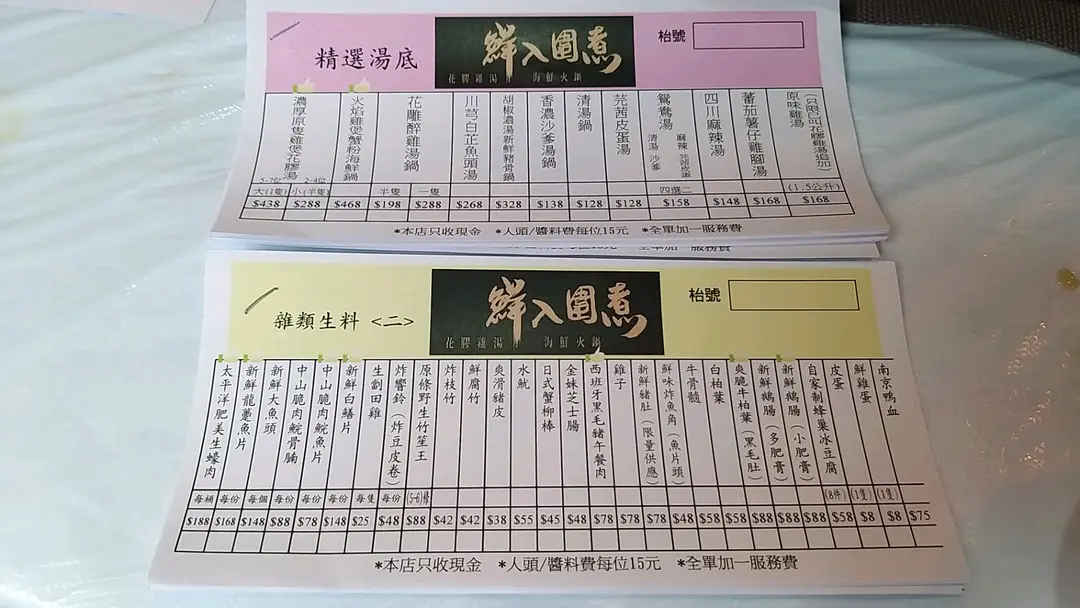 精選湯底
鮮入圍煮
花膠雞湯
海鮮火鍋
枱號
濃厚原隻雞煲花膠湯
火焰雞煲蟹粉海鮮鍋
花雕醉雞湯鍋
川芎白芷魚頭湯
胡椒濃湯新鮮豬骨鍋
香濃沙爹湯鍋
清湯鍋
芫茜皮蛋湯
鴛鴦湯
清湯 沙爹
麻辣 芫茜皮蛋
四川麻辣湯
蕃茄薯仔雞腳湯
原味雞湯
(只限已叫花膠雞湯追加)
5-7位 2-4位
大(1隻) 小(半隻) 半隻 一隻 四選二 (1.5公升)
$438 $288 $468 $198 $288 $268 $328 $138 $128 $128 $158 $148 $168 $168
*本店只收現金 *人頭/醬料費每位15元 *全單加一服務費
雜類生料 <二>
鮮入圍煮
花膠雞湯
海鮮火鍋
枱號
太平洋肥美生蠔肉
新鮮龍躉魚片
新鮮大魚頭
中山脆肉鯇骨腩
中山脆肉鯇魚片
新鮮白鱔片
生劏田雞
炸響鈴(炸豆皮卷)
原條野生竹笙王
炸枝竹
鮮腐竹
爽滑豬皮
水魷
日式蟹柳棒
金妹芝士腸
西班牙黑毛豬午餐肉
雞子
新鮮豬肚(限量供應)
鮮味炸魚角(魚片頭)
牛骨髓
白柏葉
爽脆牛柏葉(黑毛肚)
新鮮鵝腸(多肥膏)
新鮮鵝腸(小肥膏)
自家制蜂巢冰豆腐
皮蛋
鮮雞蛋
南京鴨血
每桶 每份 每個 每份 每份 每份 每隻 每份 (5-6)條 (8件) (1隻) (1隻)
$188 $168 $148 $88 $78 $148 $25 $48 $88 $42 $42 $38 $55 $45 $48 $78 $78 $78 $48 $58 $58 $88 $88 $88 $58 $8 $8 $75
*本店只收現金 *人頭/醬料費每位15元 *全單加一服務費